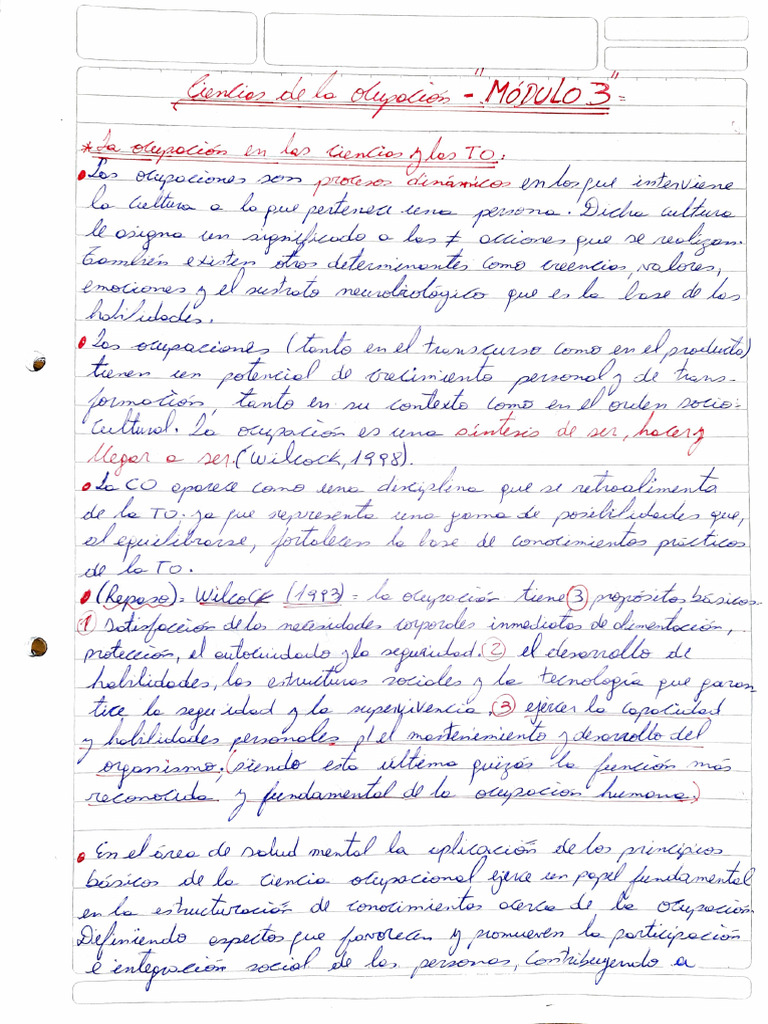 Ciencias de la Ocupación - "MÓDULO 3" =
* La ocupación en las ciencias y las TO:
• Las ocupaciones son procesos dinámicos en los que interviene
la cultura a la que pertenece una persona. Dicha cultura
le asigna un significado a las ≠ acciones que se realizan.
También existen otros determinantes como creencias, valores,
emociones y el sustrato neurobiológico que es la base de las
habilidades.
• Las ocupaciones (tanto en el transcurso como en el producto)
tienen un potencial de crecimiento personal y de trans-
formación, tanto en su contexto como en el orden socio-
cultural. La ocupación es una síntesis de ser, hacer y
llegar a ser. (Wilcock, 1998).
• La CO aparece como una disciplina que se retroalimenta
de la TO. ya que representa una gama de posibilidades que,
al equilibrarse, fortalecen la base de conocimientos prácticos
de la TO.
• (Repaso) = Wilcock (1993) = la ocupación tiene 3 propósitos básicos:
1 satisfacción de las necesidades corporales inmediatas de alimentación,
protección, el autocuidado y la seguridad. 2 el desarrollo de
habilidades, las estructuras sociales y la tecnología que garan-
tice la seguridad y la supervivencia. 3 ejercer la capacidad
y habilidades personales p/ el mantenimiento y desarrollo del
organismo; (siendo esta última quizás la función más
reconocida y fundamental de la ocupación humana.)
• En el área de salud mental la aplicación de los principios
básicos de la ciencia ocupacional ejerce un papel fundamental
en la estructuración de conocimientos acerca de la ocupación.
Definiendo aspectos que favorecen y promueven la participación
e integración social de las personas, contribuyendo a